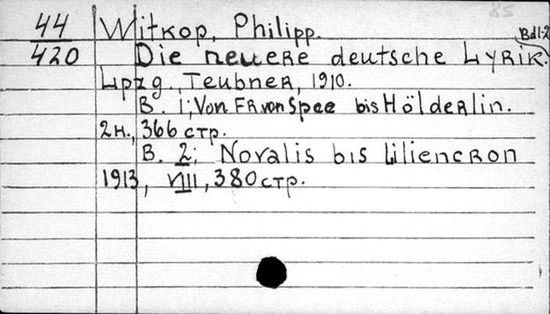 85
44 Witkop, Philipp. Bd1-2
420 Die neuere deutsche Lyrik.
Lpzg., Teubner, 1910.
B. 1; Von FR von Spee bis Hölderlin.
2н., 366 стр.
B. 2; Novalis bis Liliencron
1913, VIII, 380 стр.